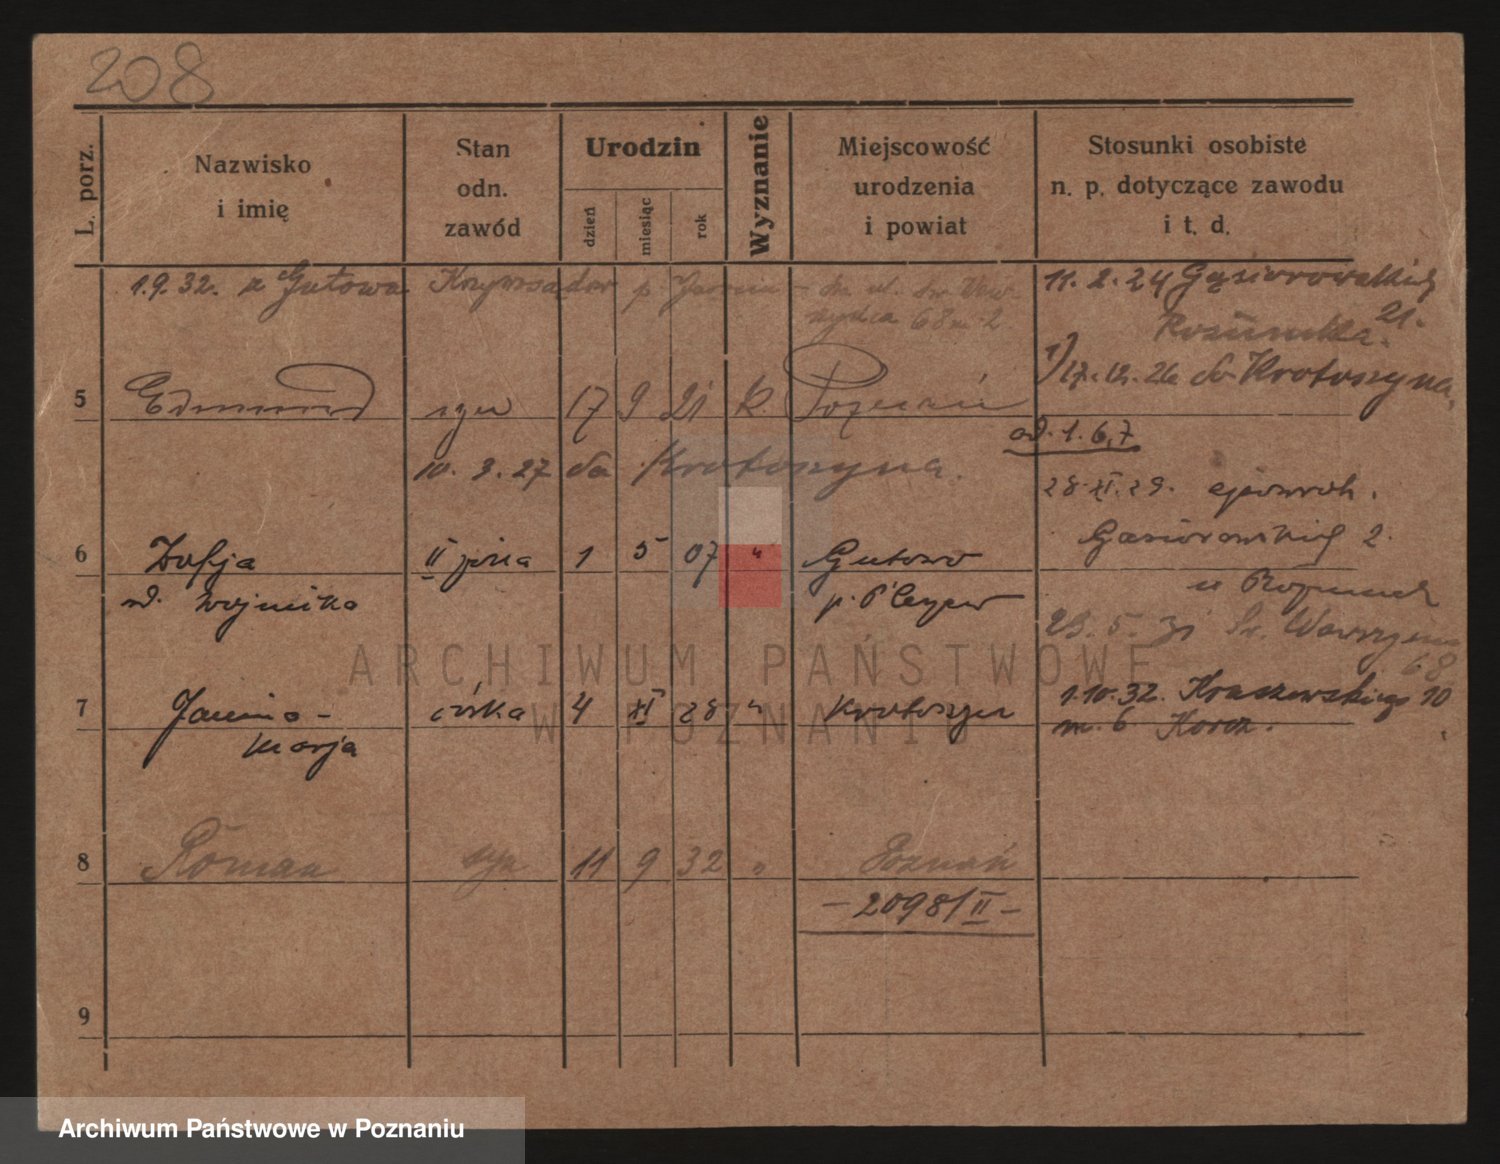 208
L. porz.
Nazwisko
i imię
Stan
odn.
zawód
Urodzin
dzień
miesiąc
rok
Wyznanie
Miejscowość
urodzenia
i powiat
Stosunki osobiste
n. p. dotyczące zawodu
i t. d.
1.9.32. z Gutowa
68 m 2.
11. 2. 24 Gąsiorowskich
21.
1) 17. 12. 26 do Krotoszyna,
5 Edmund syn 17 9 21 k. Poznań
od. 1. 6,7
10. 3. 27 do Krotoszyna.
28. XI. 29.
Gąsiorowskich 2.
6 Zofja II żona 1 5 07 " Gutowo
zd. Wojnicka p. Pleszew
29. 5. 31 Św. Wawrzyńca
68
7 Janina - córka 4 XI 28 " Krotoszyn
Marja
1.10.32. Kraszewskiego 10
m. 6
8 Roman syn 11 9 32 " Poznań
- 2098/II -
9
ARCHIWUM PAŃSTWOWE
W POZNANIU
Archiwum Państwowe w Poznaniu